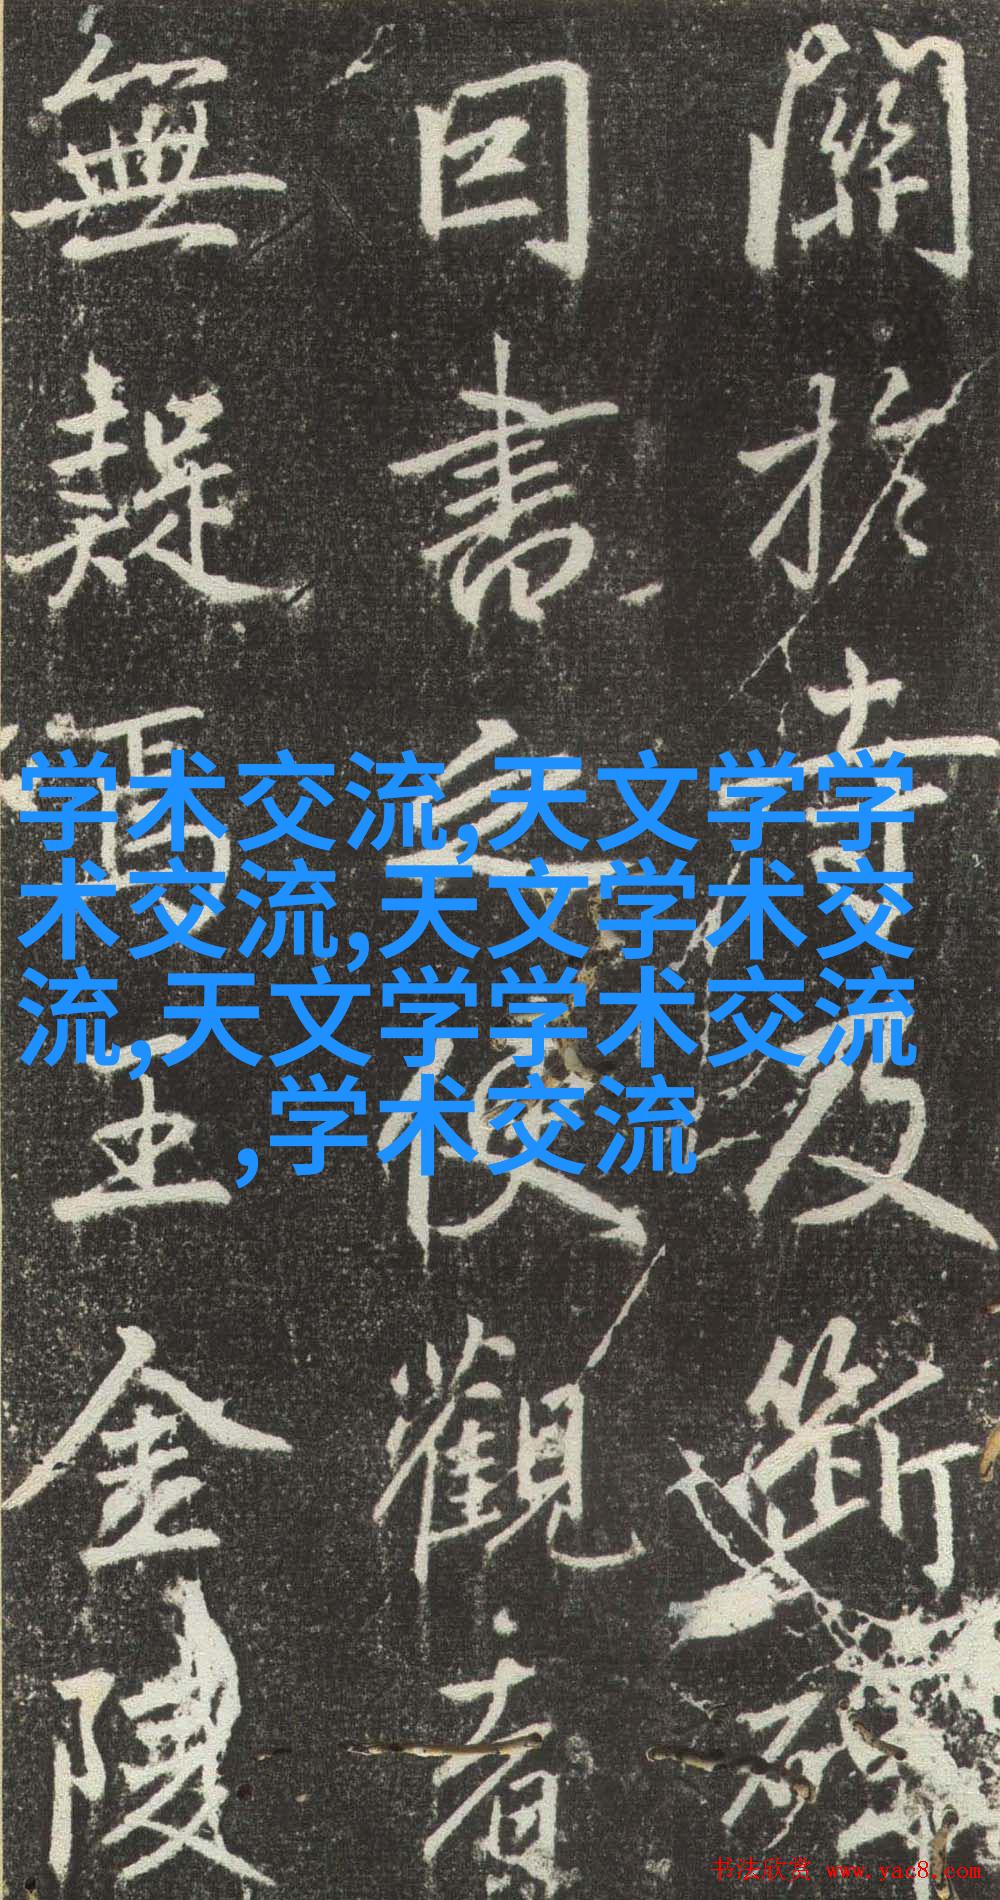 關於及斷
囙書之使觀者
無疑焉王金陵
学术交流,天文学学
术交流,天文学术交
流,天文学学术交流
,学术交流
书法欣赏 www.yac8.com